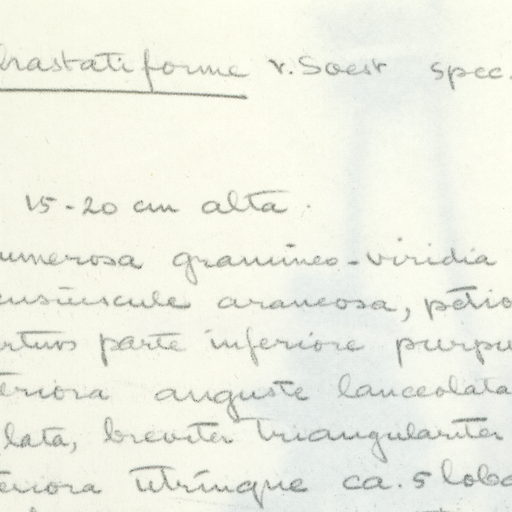 hrastatiforme v. Soest spec.
15-20 cm alta.
umerosa gramineo-viridia
ensiuscule araneosa, petio
parte inferiore purpu
teriora anguste lanceolata
lata, breviter triangulariter
teriora utrinque ca. 5 lobo